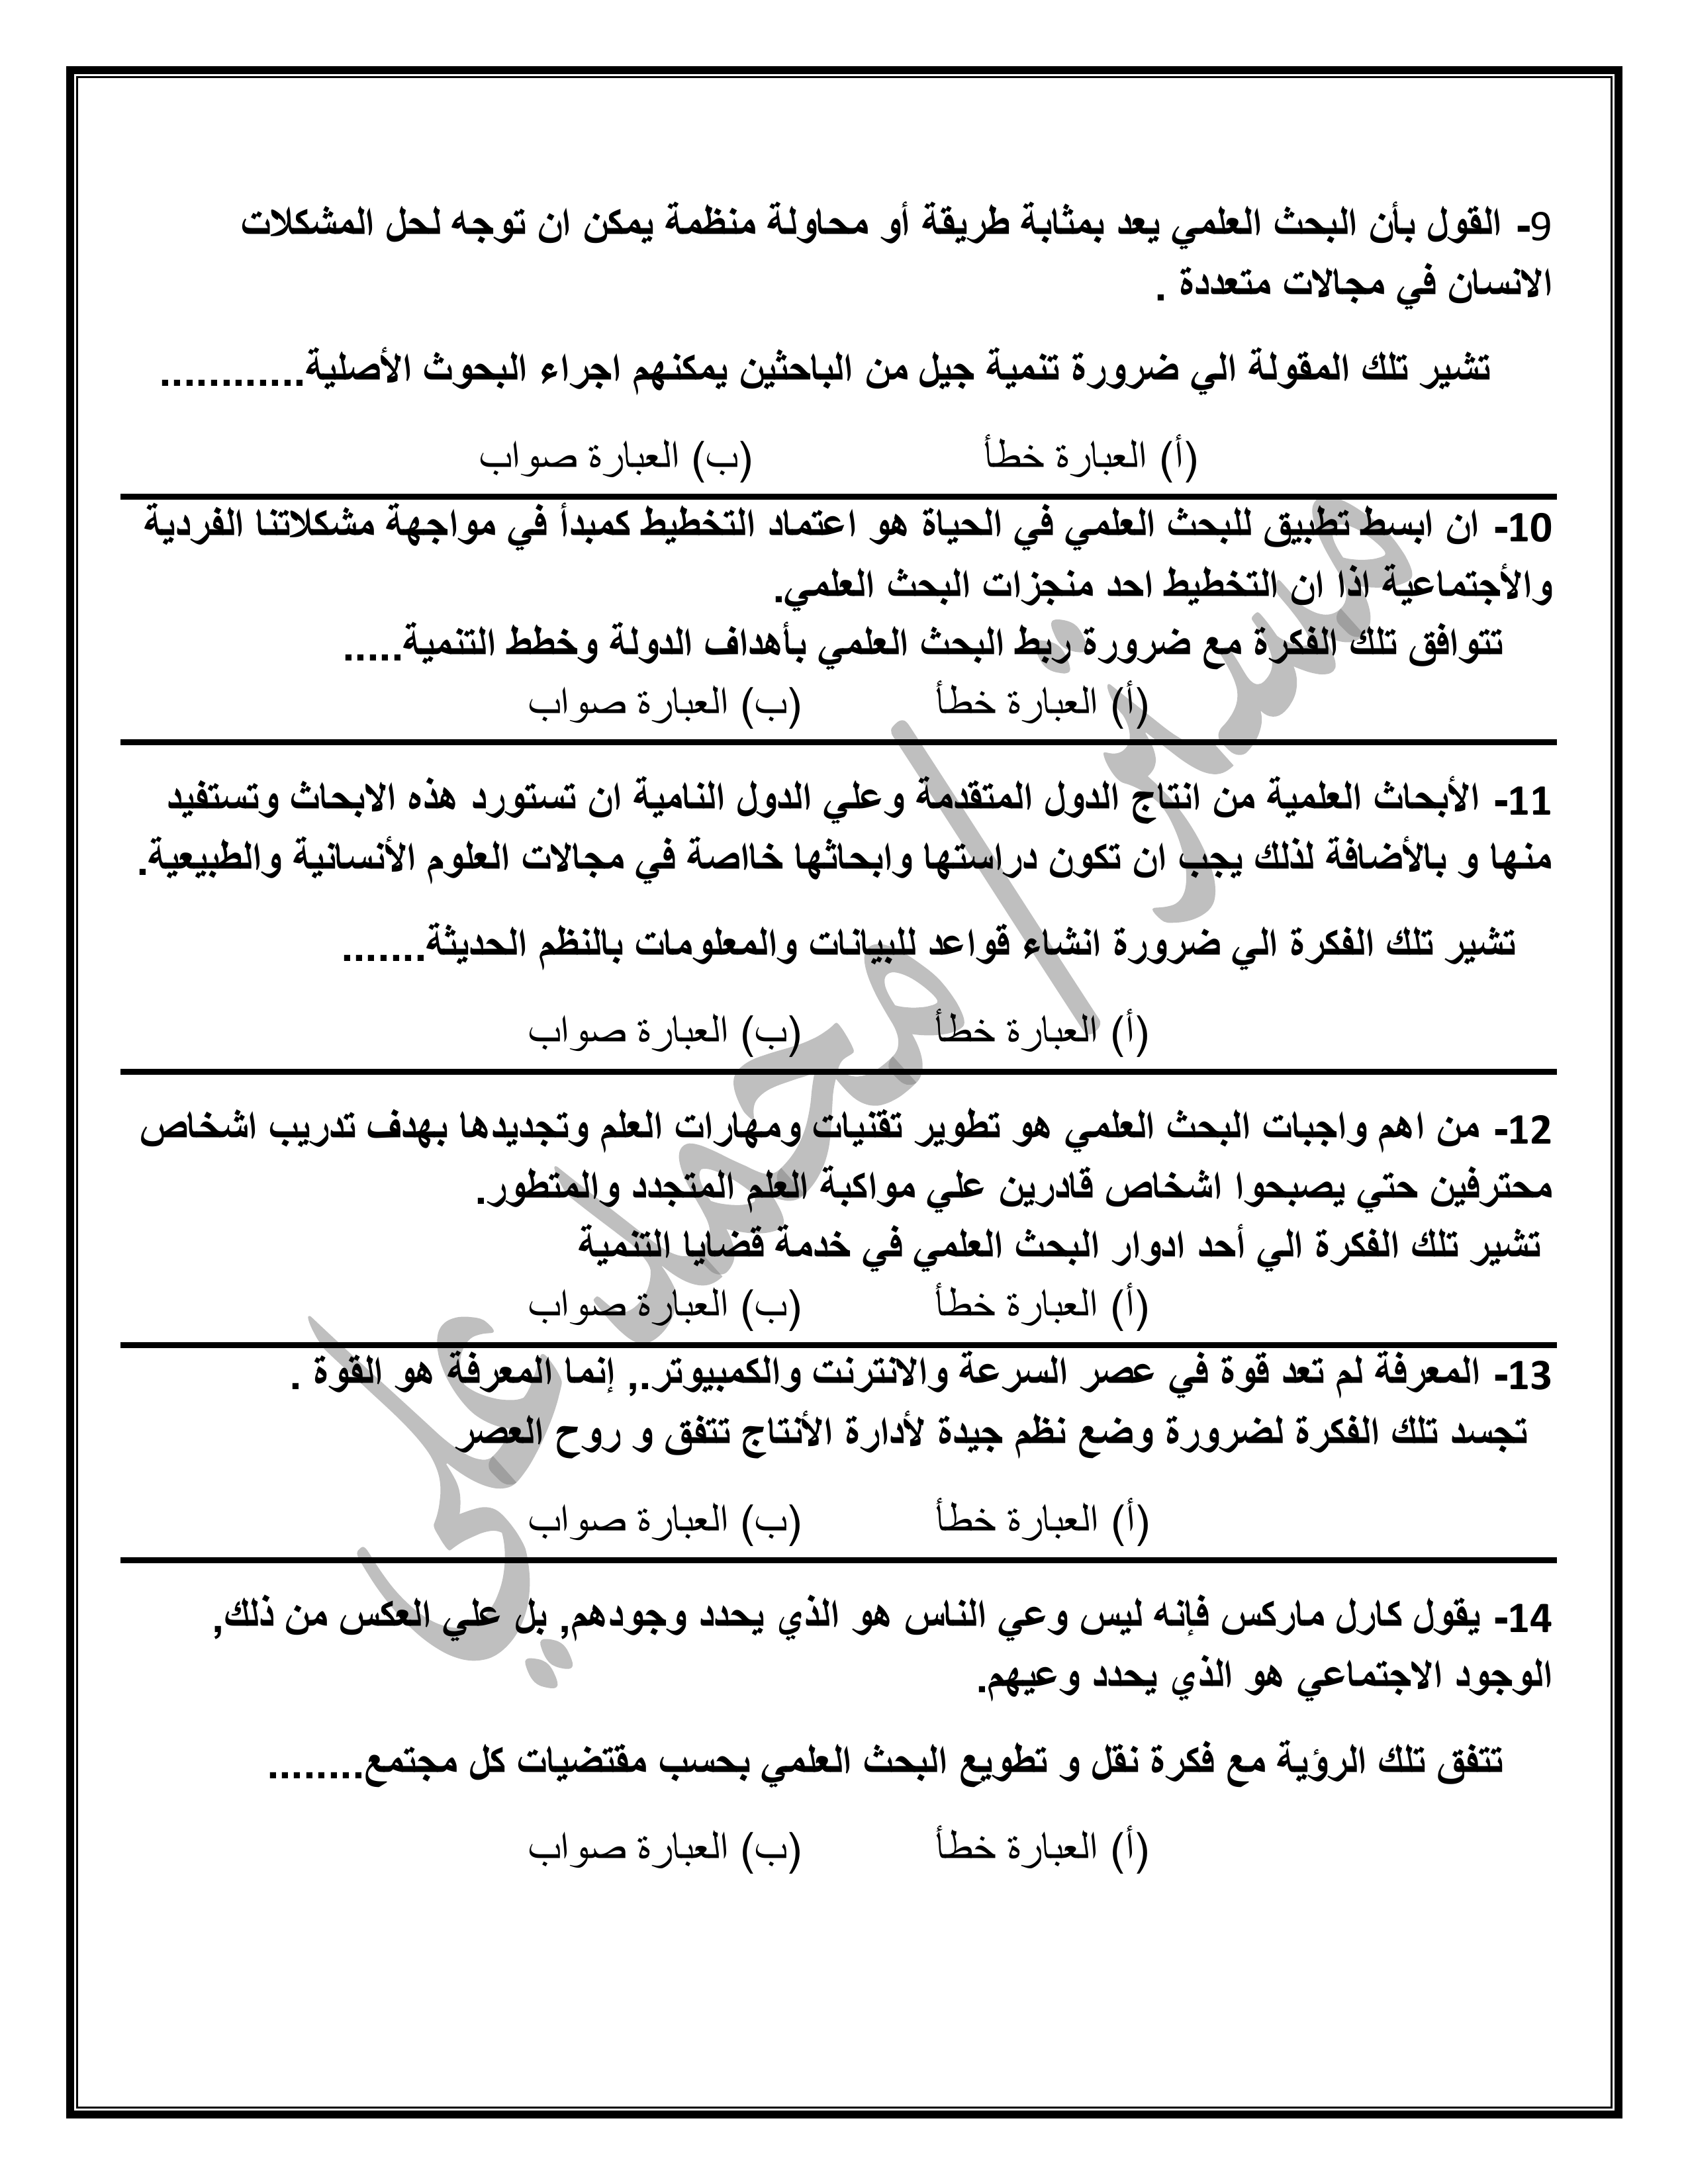 9- القول بأن البحث العلمي يعد بمثابة طريقة أو محاولة منظمة يمكن ان توجه لحل المشكلات
الانسان في مجالات متعددة .
تشير تلك المقولة الي ضرورة تنمية جيل من الباحثين يمكنهم اجراء البحوث الأصلية............
(أ) العبارة خطأ (ب) العبارة صواب
10- ان ابسط تطبيق للبحث العلمي في الحياة هو اعتماد التخطيط كمبدأ في مواجهة مشكلاتنا الفردية
والأجتماعية اذا ان التخطيط احد منجزات البحث العلمي.
تتوافق تلك الفكرة مع ضرورة ربط البحث العلمي بأهداف الدولة وخطط التنمية.....
(أ) العبارة خطأ (ب) العبارة صواب
11- الأبحاث العلمية من انتاج الدول المتقدمة وعلي الدول النامية ان تستورد هذه الابحاث وتستفيد
منها و بالأضافة لذلك يجب ان تكون دراستها وابحاثها خااصة في مجالات العلوم الأنسانية والطبيعية.
تشير تلك الفكرة الي ضرورة انشاء قواعد للبيانات والمعلومات بالنظم الحديثة.......
(أ) العبارة خطأ (ب) العبارة صواب
12- من اهم واجبات البحث العلمي هو تطوير تقنيات ومهارات العلم وتجديدها بهدف تدريب اشخاص
محترفين حتي يصبحوا اشخاص قادرين علي مواكبة العلم المتجدد والمتطور.
تشير تلك الفكرة الي أحد ادوار البحث العلمي في خدمة قضايا التنمية
(أ) العبارة خطأ (ب) العبارة صواب
13- المعرفة لم تعد قوة في عصر السرعة والانترنت والكمبيوتر., إنما المعرفة هو القوة .
تجسد تلك الفكرة لضرورة وضع نظم جيدة لأدارة الأنتاج تتفق و روح العصر
(أ) العبارة خطأ (ب) العبارة صواب
14- يقول كارل ماركس فإنه ليس وعي الناس هو الذي يحدد وجودهم, بل علي العكس من ذلك,
الوجود الاجتماعي هو الذي يحدد وعيهم.
تتفق تلك الرؤية مع فكرة نقل و تطويع البحث العلمي بحسب مقتضيات كل مجتمع........
(أ) العبارة خطأ (ب) العبارة صواب
مستر/محمد علي